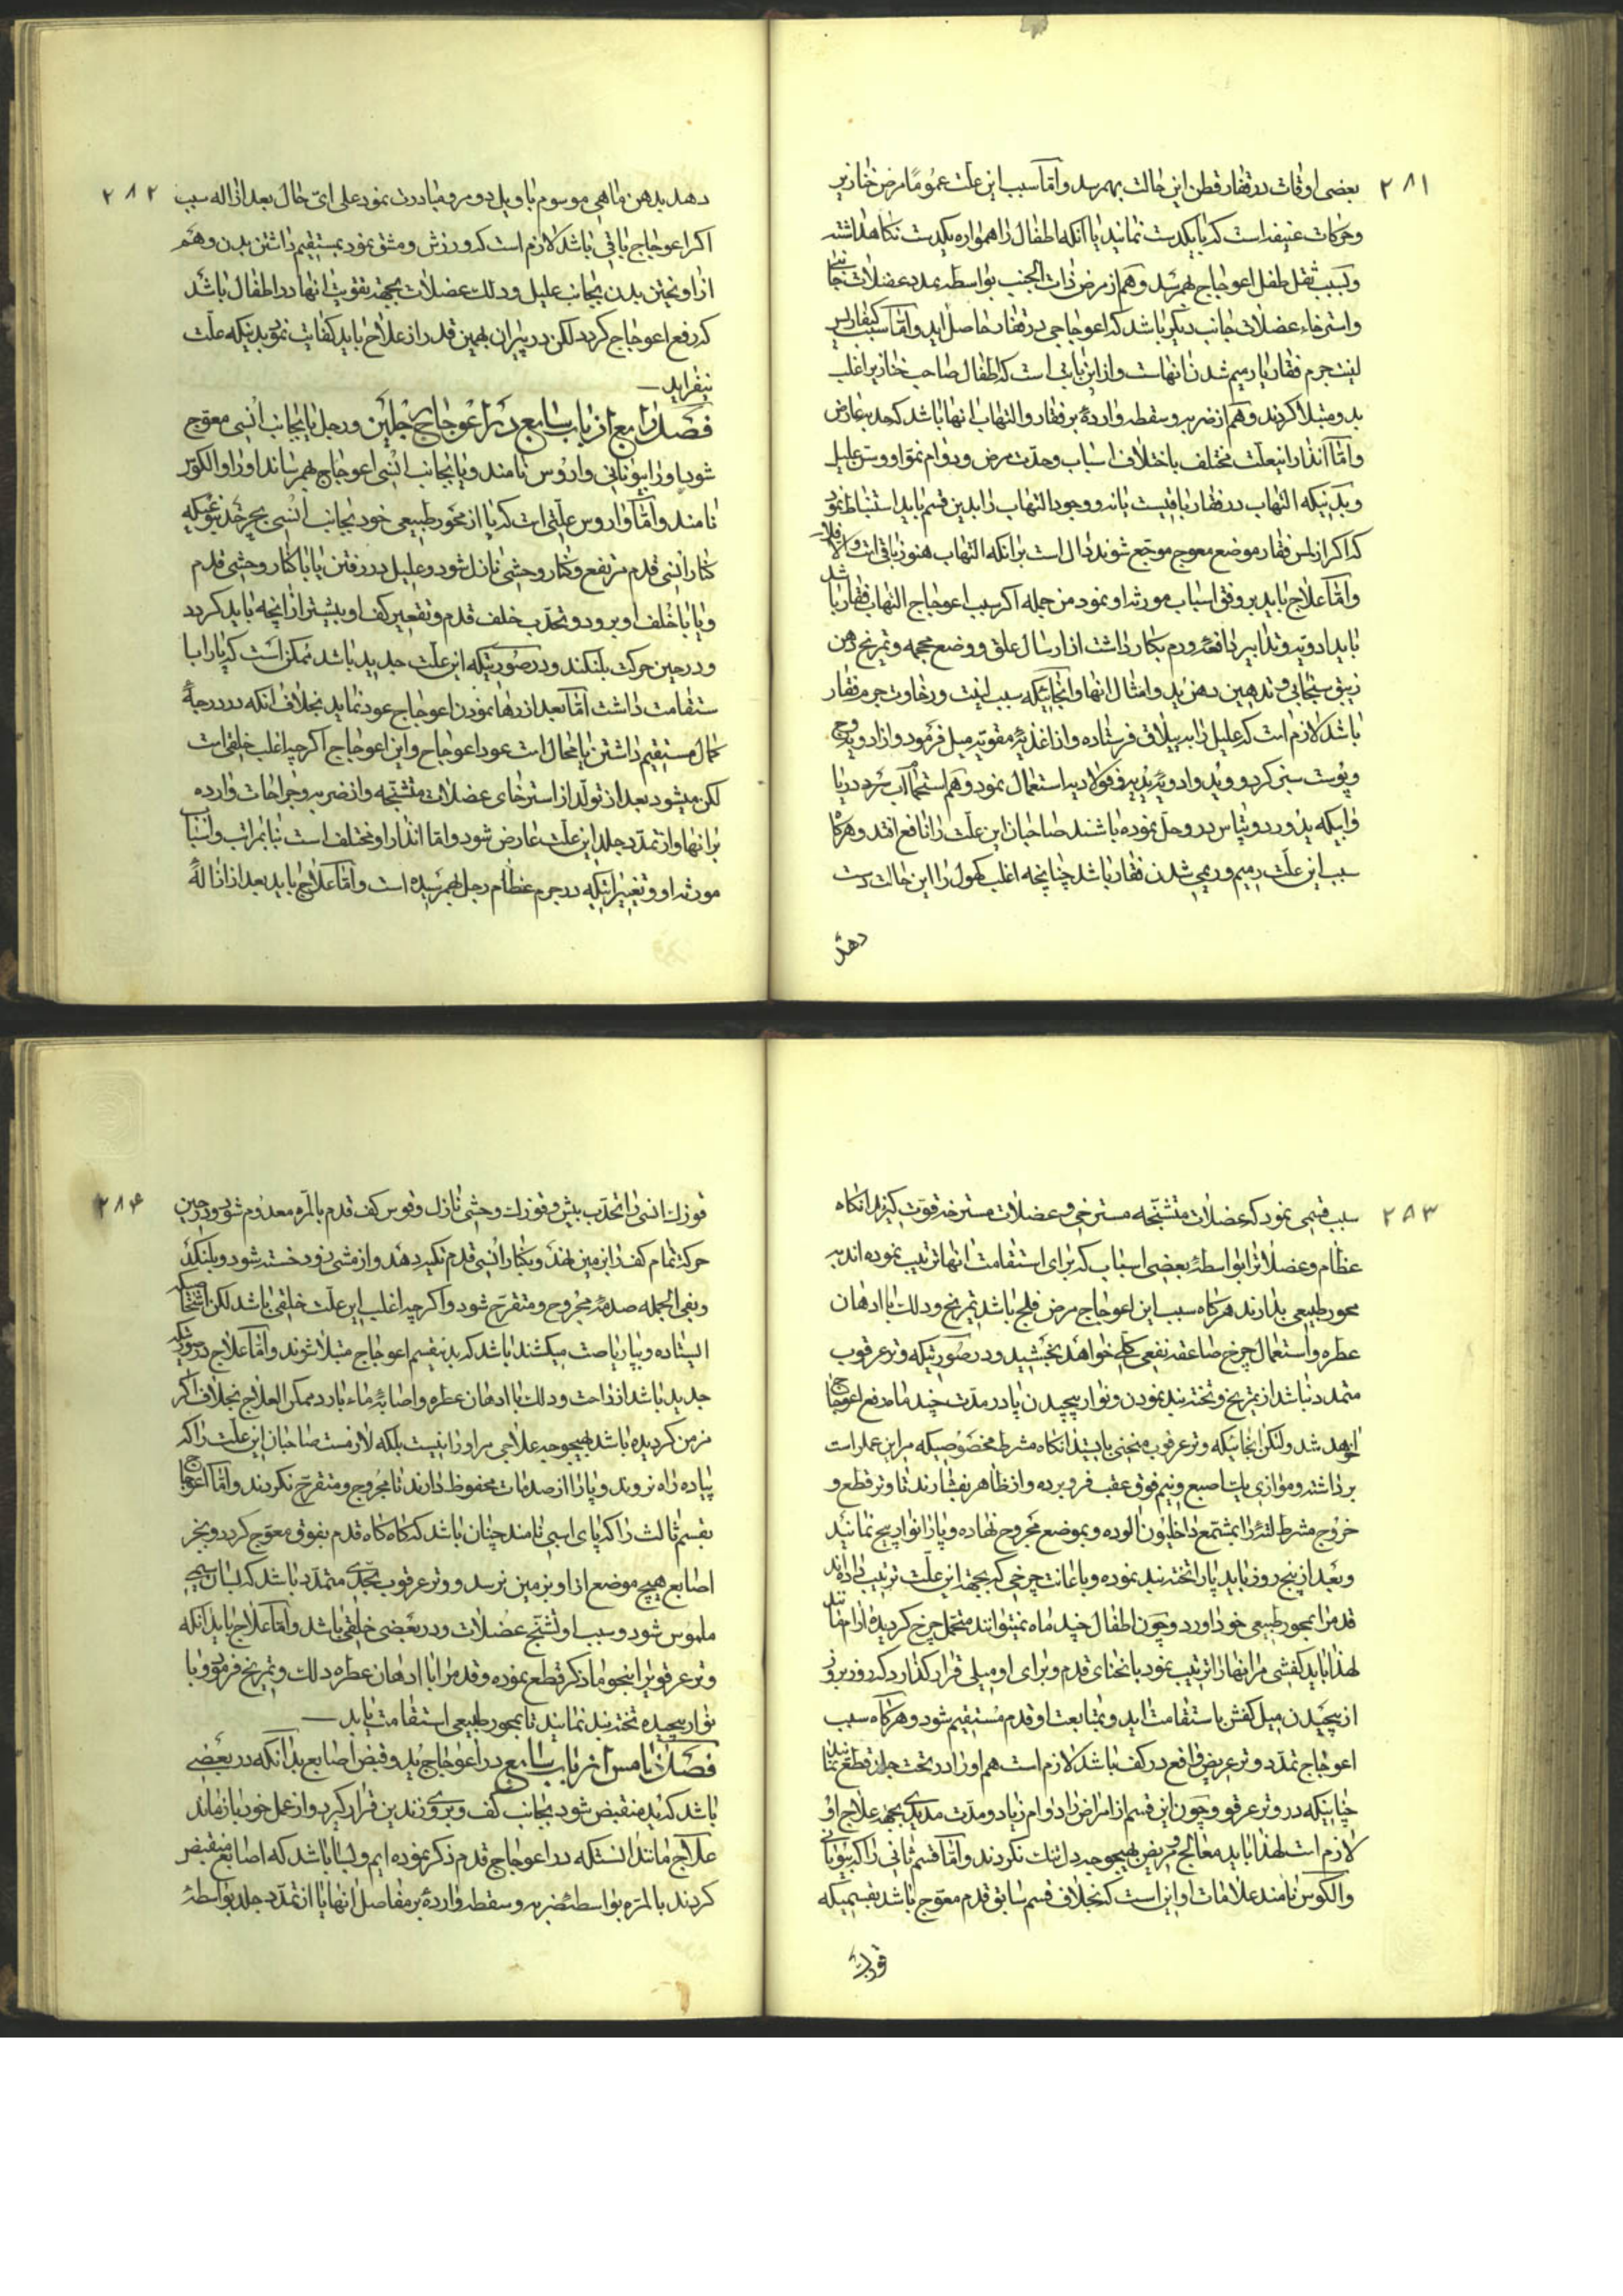 ۲۸۱
بعضی اوقات در فقار قطن این حالت بهم رسد و اما سبب این علت عموما مرض خنازیر
و حرکات عنیفه است که با یکدست نمایند یا آنکه اطفال را همواره بیکدست نگاهداشته
و بسبب ثقل طفل اعوجاج بهم رسد و هم از مرض ذات الجنب بواسطه تمدد عضلات جانبی
و استرخاء عضلات جانب دیگر باشد که اعوجاجی در فقار حاصل آید و اما سبب
لینت جرم فقار یا رمیم شدن آنهاست و از این بابت است که اطفال صاحب خنازیر اغلب
بدو مبتلا گردند و هم از ضربه و سقطه واردهٔ بر فقار و التهاب آنها باشد که
و اما انذار اینعلت مختلف باختلاف اسباب و حدت مرض و دوام نمو او و سن علیل
و بدینکه التهاب در فقار باقیست یا نه و وجود التهاب را بدین قسم باید استنباط نمود
که اگر از لمس فقار موضع معوج موجع شوند دال است بر آنکه التهاب هنوز باقی است و الا فلا
و اما علاج باید بر وفق اسباب مورثه او نمود من جمله اگر سبب اعوجاج التهاب فقار باشد
باید ادویه و تدابیر دافعهٔ ورم بکار داشت از ارسال علق و وضع محجمه و تمریخ دهن
زیبق سنجابی و تدهین دهن ید و امثال آنها و آنجائیکه سبب لینت و رخاوت جرم فقار
باشد لازم است که علیل را به ییلاق فرستاده و از اغذیهٔ مقویه میل فرمود و از ادویه
و پوست سبز گردو و ید و ادویهٔ یدیه و فولادیه استعمال نمود و هم استحمام آب سرد دریا
و آبیکه ید و پتاس در او حل نموده باشند صاحبان این علت را نافع افتد و هرگاه
سبب این علت رمیم و ریمی شدن فقار باشد چنانچه اغلب کهول را این حالت دست
دهد
۲۸۲
دهد بدهن ماهی موسوم باویل دو مرو مبادرت نمود علی ای حال بعد از ازاله سبب
اگر اعوجاج باقی باشد لازم است که ورزش و مشق نمود بمستقیم داشتن بدن و هم
از آویختن بدن بجانب علیل و دلک عضلات بجهة تقویت آنها در اطفال باشد
که رفع اعوجاج گردد لکن در پیران بهمین قدر از علاج باید کفایت نمود بدینکه علت
نیفزاید
فصل رابع از باب سابع در اعوجاج رجلین و رجل یا بجانب انسی معوج
شود او را بیونانی واروس نامند و یا بجانب انسی اعوجاج بهم رساند او را والکوز
نامند و اما واروس علتی است که پا از محور طبیعی خود بجانب انسی بچرخد بنوعیکه
کنار انسی قدم مرتفع و کنار وحشی نازل شود و علیل در رفتن یا با کنار وحشی قدم
و یا با خلف او برود و تحدب خلف قدم و تقعیر کف او بیشتر از آنچه باید گردد
و در حین حرکت بلنگد و در صورتیکه این علت جدید باشد ممکن است که پا را با
ستقامت داشت اما بعد از رها نمودن اعوجاج عود نماید بخلاف آنکه در درجهٔ
کمال مستقیم داشتن پا محال است عود اعوجاج و این اعوجاج اگرچه اغلب خلقی است
لکن میشود بعد از تولد از استرخای عضلات متشنجه و از ضربه و جراحات وارده
بر آنها و از تمدد جلد این علت عارض شود و اما انذار او مختلف است بنا بمراتب و اسباب
مورثه او و تغییراتیکه در جرم عظام رجل بهم رسیده است و اما علاج باید بعد از ازالهٔ
۲۸۳
سبب قسمی نمود که عضلات متشنجه مسترخی و عضلات مسترخیه قوت گیرند آنگاه
عظام و عضلات را بواسطهٔ بعضی اسباب که برای استقامت آنها ترتیب نموده اند به
محور طبیعی بدارند هرگاه سبب این اعوجاج مرض فلج باشد تمریخ و دلک با ادهان
عطره و استعمال چرخ صاعقه نفعی کلی خواهد بخشید و در صورتیکه وتر عرقوب
متمدد نباشد از تمریخ و تخته بند نمودن و نوار پیچیدن پا در مدت چند ماه دفع اعوجاج
خواهد شد ولکن آنجائیکه وتر عرقوب منحنی بایستد آنگاه مشرط مخصوصیکه مر این عمل راست
برداشته و موازی یک اصبع و نیم فوق عقب فرو برده و از ظاهر بفشارند تا وتر قطع و
خروج مشرط را بمشمع داخلیون آلوده و بموضع مجروح نهاده و پا را نوار پیچ نمایند
و بعد از پنج روز باید پا را تخته بند نموده و با عانت چرخی که بجهة این علت ترتیب داده اند
قدم را بمحور طبیعی خود آورد و چون اطفال چند ماه نمیتوانند متحمل چرخ گردیده
لهذا باید کفشی مر آنها را ترتیب نمود بانحنای قدم و برای او میلی قرار گذارد که روز بروز
از پیچیدن میل کفش باستقامت آید و بمتابعت او قدم مستقیم شود و هرگاه سبب
اعوجاج تمدد وتر عریض واقع در کف باشد لازم است هم او را در تحت جلد قطع نمایند
چنانکه در وتر عرقوب و چون این قسم از امراض را دوام زیاد و مدت مدیدی بجهة علاج او
لازم است لهذا باید معالج و مریض بهیچوجه دل تنگ نگردند و اما قسم ثانی را که بیونانی
والکوس نامند علامات او این است که بخلاف قسم سابق قدم معوج باشد بقسمیکه
قوزک
۲۸۴
قوزک انسی را تحدب بیش و قوزک وحشی نازل و قوس کف قدم بالمره معدوم شود و در حین
حرکت تمام کف را بزمین نهد و بکنار انسی قدم تکیه دهد و از مشی زود خسته شود و بلنگد
و بفی الجمله صدمهٔ مجروح و متقرح شود و اگرچه اغلب این علت خلقی باشد لکن اشخاصیکه
ایستاده و بپا ریاضت میکشند باشد که بدینقسم اعوجاج مبتلا شوند و اما علاج در صورتیکه
جدید باشد از راحت و دلک با ادهان عطره و اصابهٔ ماء بارد ممکن العلاج بخلاف اگر
مزمن گردیده باشد بهیچوجه علاجی مر او را نیست بلکه لازمست صاحبان این علت را که
پیاده راه نروند و پا را از صدمات محفوظ دارند تا مجروح و متقرح نگردند و اما اعوجاج
بقسم ثالث را که پای اسبی نامند چنان باشد که گاه گاه قدم بفوق معوج گردد و بجز
اصابع هیچ موضع از او بزمین نرسد و وتر عرقوب بحدی متمدد باشد که
ملموس شود و سبب او تشنج عضلات و در بعضی خلقی باشد و اما علاج باید آنکه
وتر عرقوب را بنحو ماذکر قطع نموده و قدم را با ادهان عطره دلک و تمریخ فرمود و با
نوار پیچیده تخته بند نمایند تا بمحور طبیعی استقامت یابد
فصل خامس از باب سابع در اعوجاج ید و قبض اصابع بدانکه در بعضی
باشد که ید منقبض شود بجانب کف و بر روی زندین قرار گیرد و از عمل خود باز ماند
علاج مانند آنستکه در اعوجاج قدم ذکر نموده ایم و بسا باشد که اصابع منقبض
گردند بالمره بواسطهٔ ضربه و سقطه واردهٔ بر مفاصل آنها یا از تمدد جلد بواسطهٔ